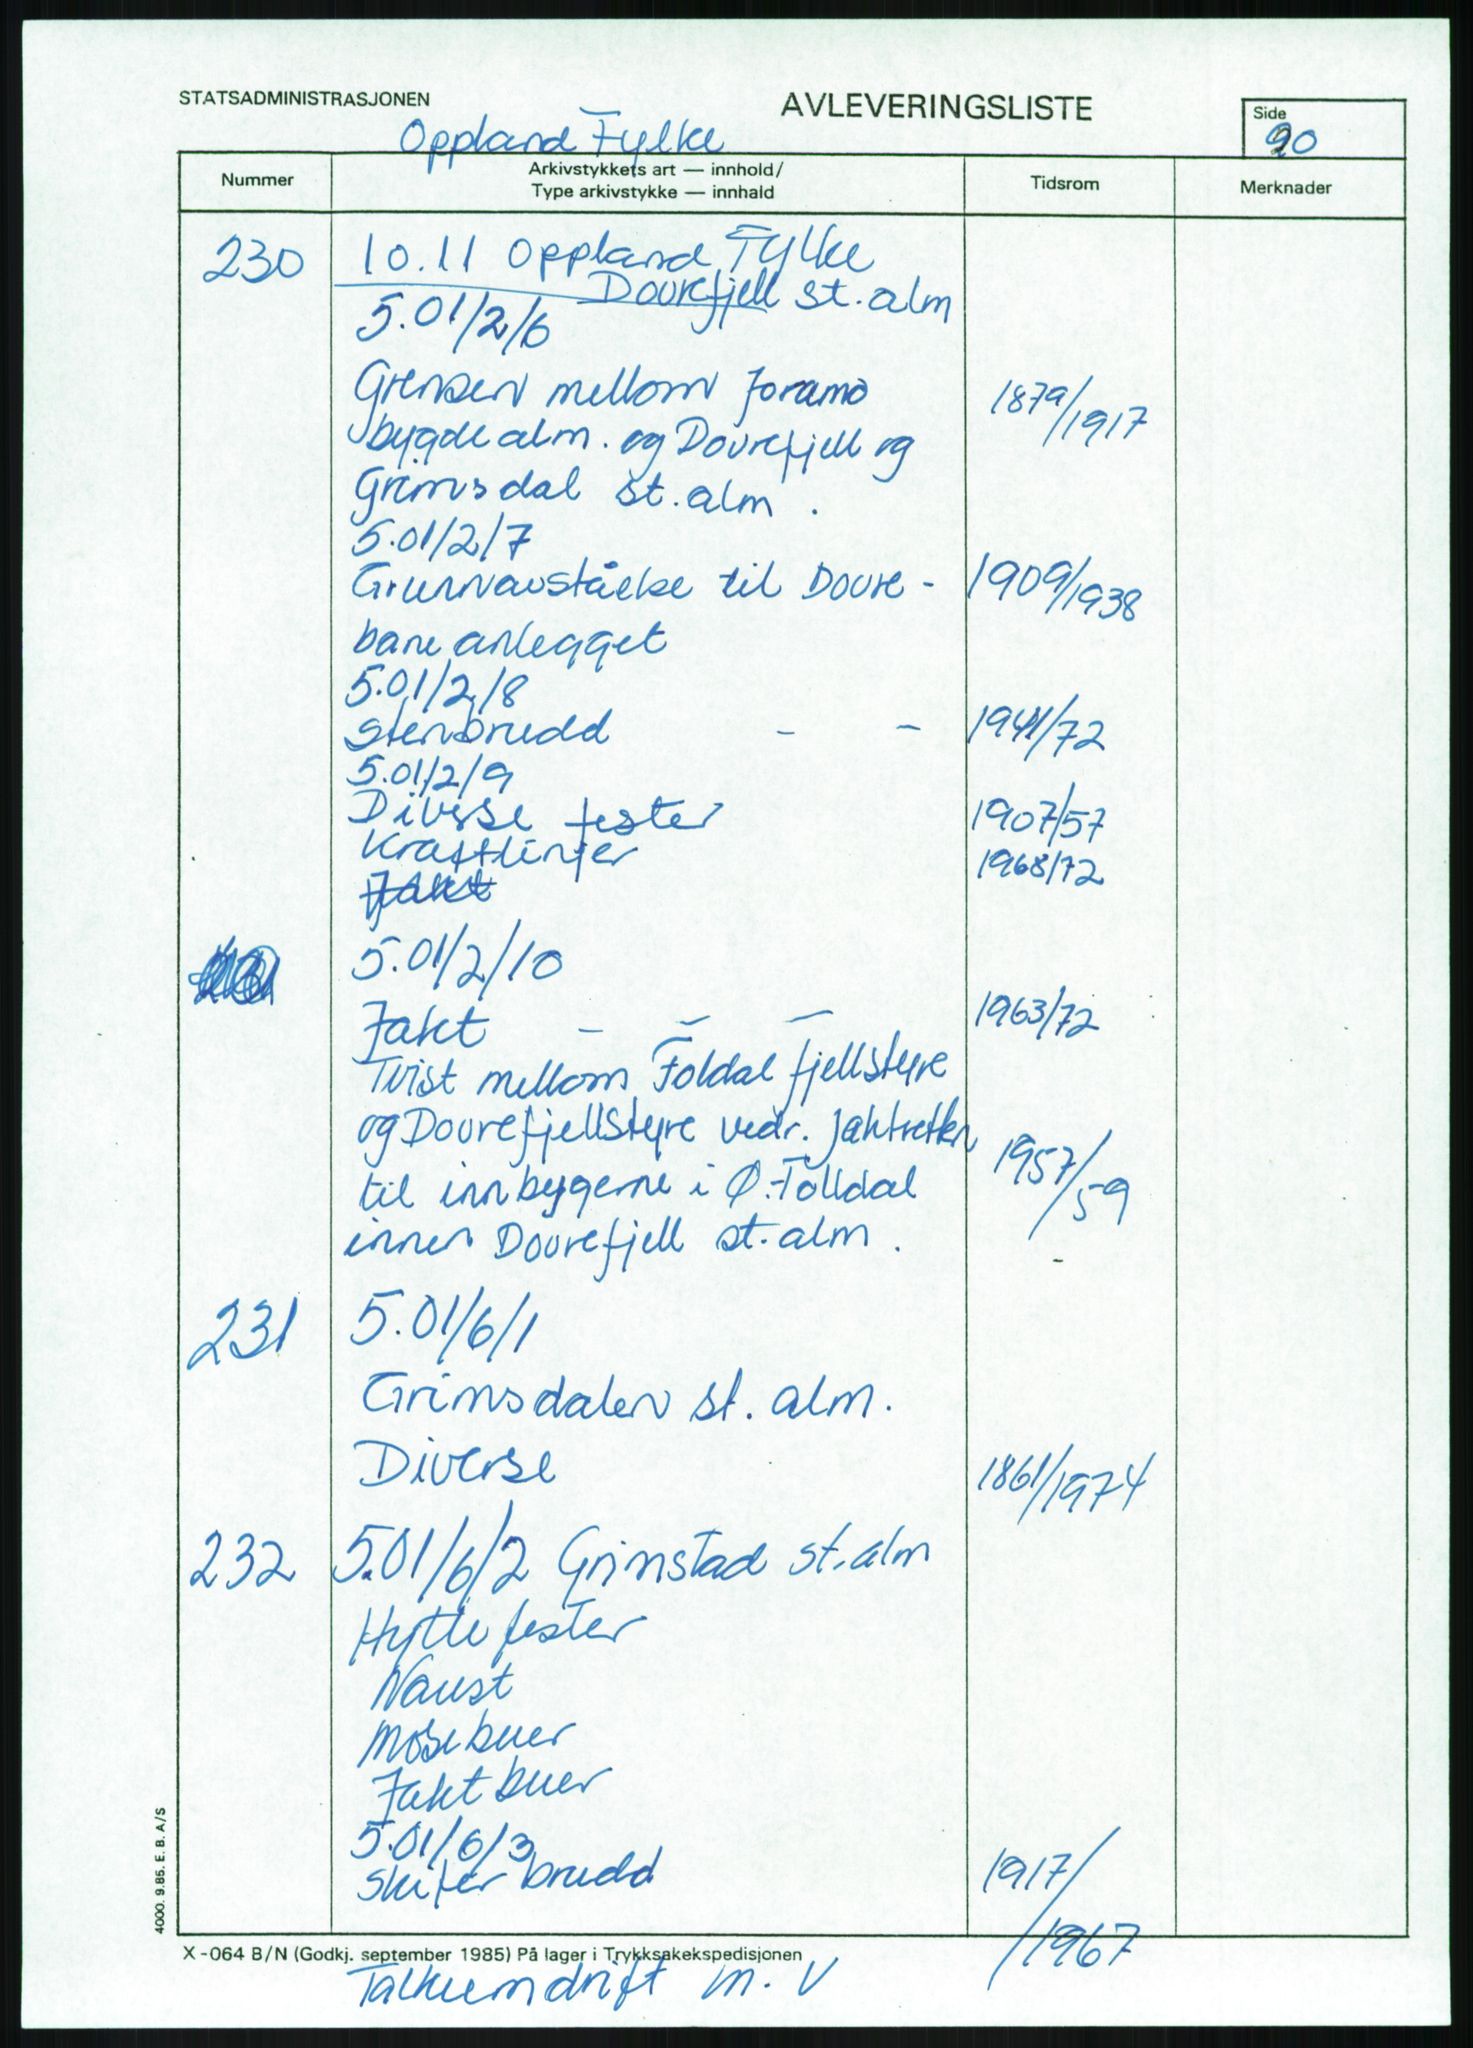 STATSADMINISTRASJONEN
AVLEVERINGSLISTE
Side
20
Oppland Fylke
Nummer
Arkivstykkets art — innhold/
Type arkivstykke — innhald
Tidsrom
Merknader
230 10.11 Oppland Fylke
Dovrefjell st. alm
5.01/2/6
Grensen mellom Joramo 1879/1917
bygdealm. og Dovrefjell og
Grimsdal st. alm.
5.01/2/7
Grunnavståelse til Dovre- 1909/1938
baneanlegget
5.01/2/8
Stenbrudd - - 1941/72
5.01/2/9
Diverse fester 1907/57
Kraftlinjer 1968/72
Jakt
231 5.01/2/10
Jakt - - - 1963/72
Tvist mellom Foldal fjellstyre
og Dovrefjellstyre vedr. jaktretten
til innbygerne i Ø. Folldal 1957/59
innen Dovrefjell st. alm.
231 5.01/6/1
Grimsdalen st. alm.
Diverse 1861/1974
232 5.01/6/2 Grimstad st. alm
Hyttefester
Naust
Mosebuer
Jaktbuer
5.01/6/3
Skiferbrudd 1917/1967
4000. 9.85. E. B. A/S
X-064 B/N (Godkj. september 1985) På lager i Trykksakekspedisjonen
Talkumdrift m.v